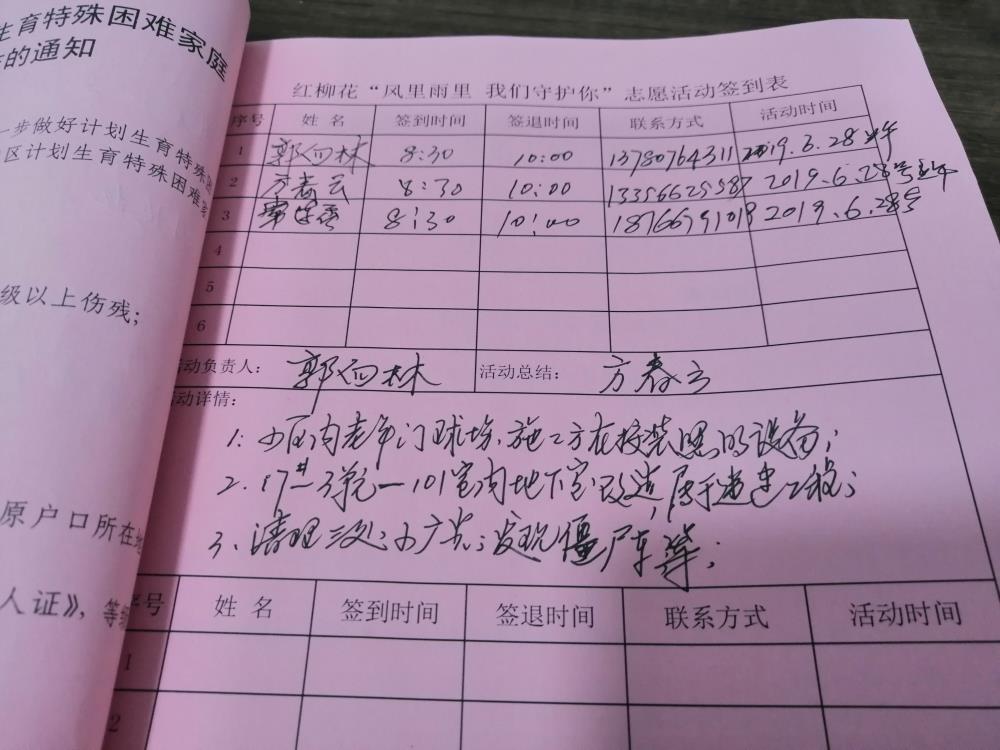 生育特殊困难家庭
的通知
一步做好计划生育特殊
区计划生育特殊困难家
级以上伤残；
原户口所在地
人证》，等级
红柳花“风里雨里 我们守护你”志愿活动签到表
序号 姓名 签到时间 签退时间 联系方式 活动时间
1 郭向林 8:30 10:00 13780764311 2019.6.28上午
2 方春云 8:30 10:00 13356625587 2019.6.28号上午
3 8:30 10:00 18766791019 2019.6.28号
4
5
6
活动负责人： 郭向林 活动总结： 方春云
活动详情：
1：小区内老年门球场，施工方在安装照明设备；
2．17#3单元-101室内地下室改造，属于违建工程；
3、清理三处小广告；发现僵尸车等；
序号 姓名 签到时间 签退时间 联系方式 活动时间
1
2